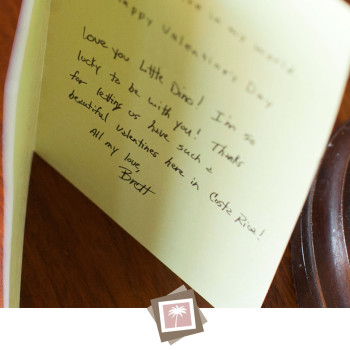 in my world
Happy Valentine's Day
Love you Little Dino! I'm so
lucky to be with you! Thanks
for letting us have such a
beautiful valentines here in Costa Rica!
All my love,
Brett